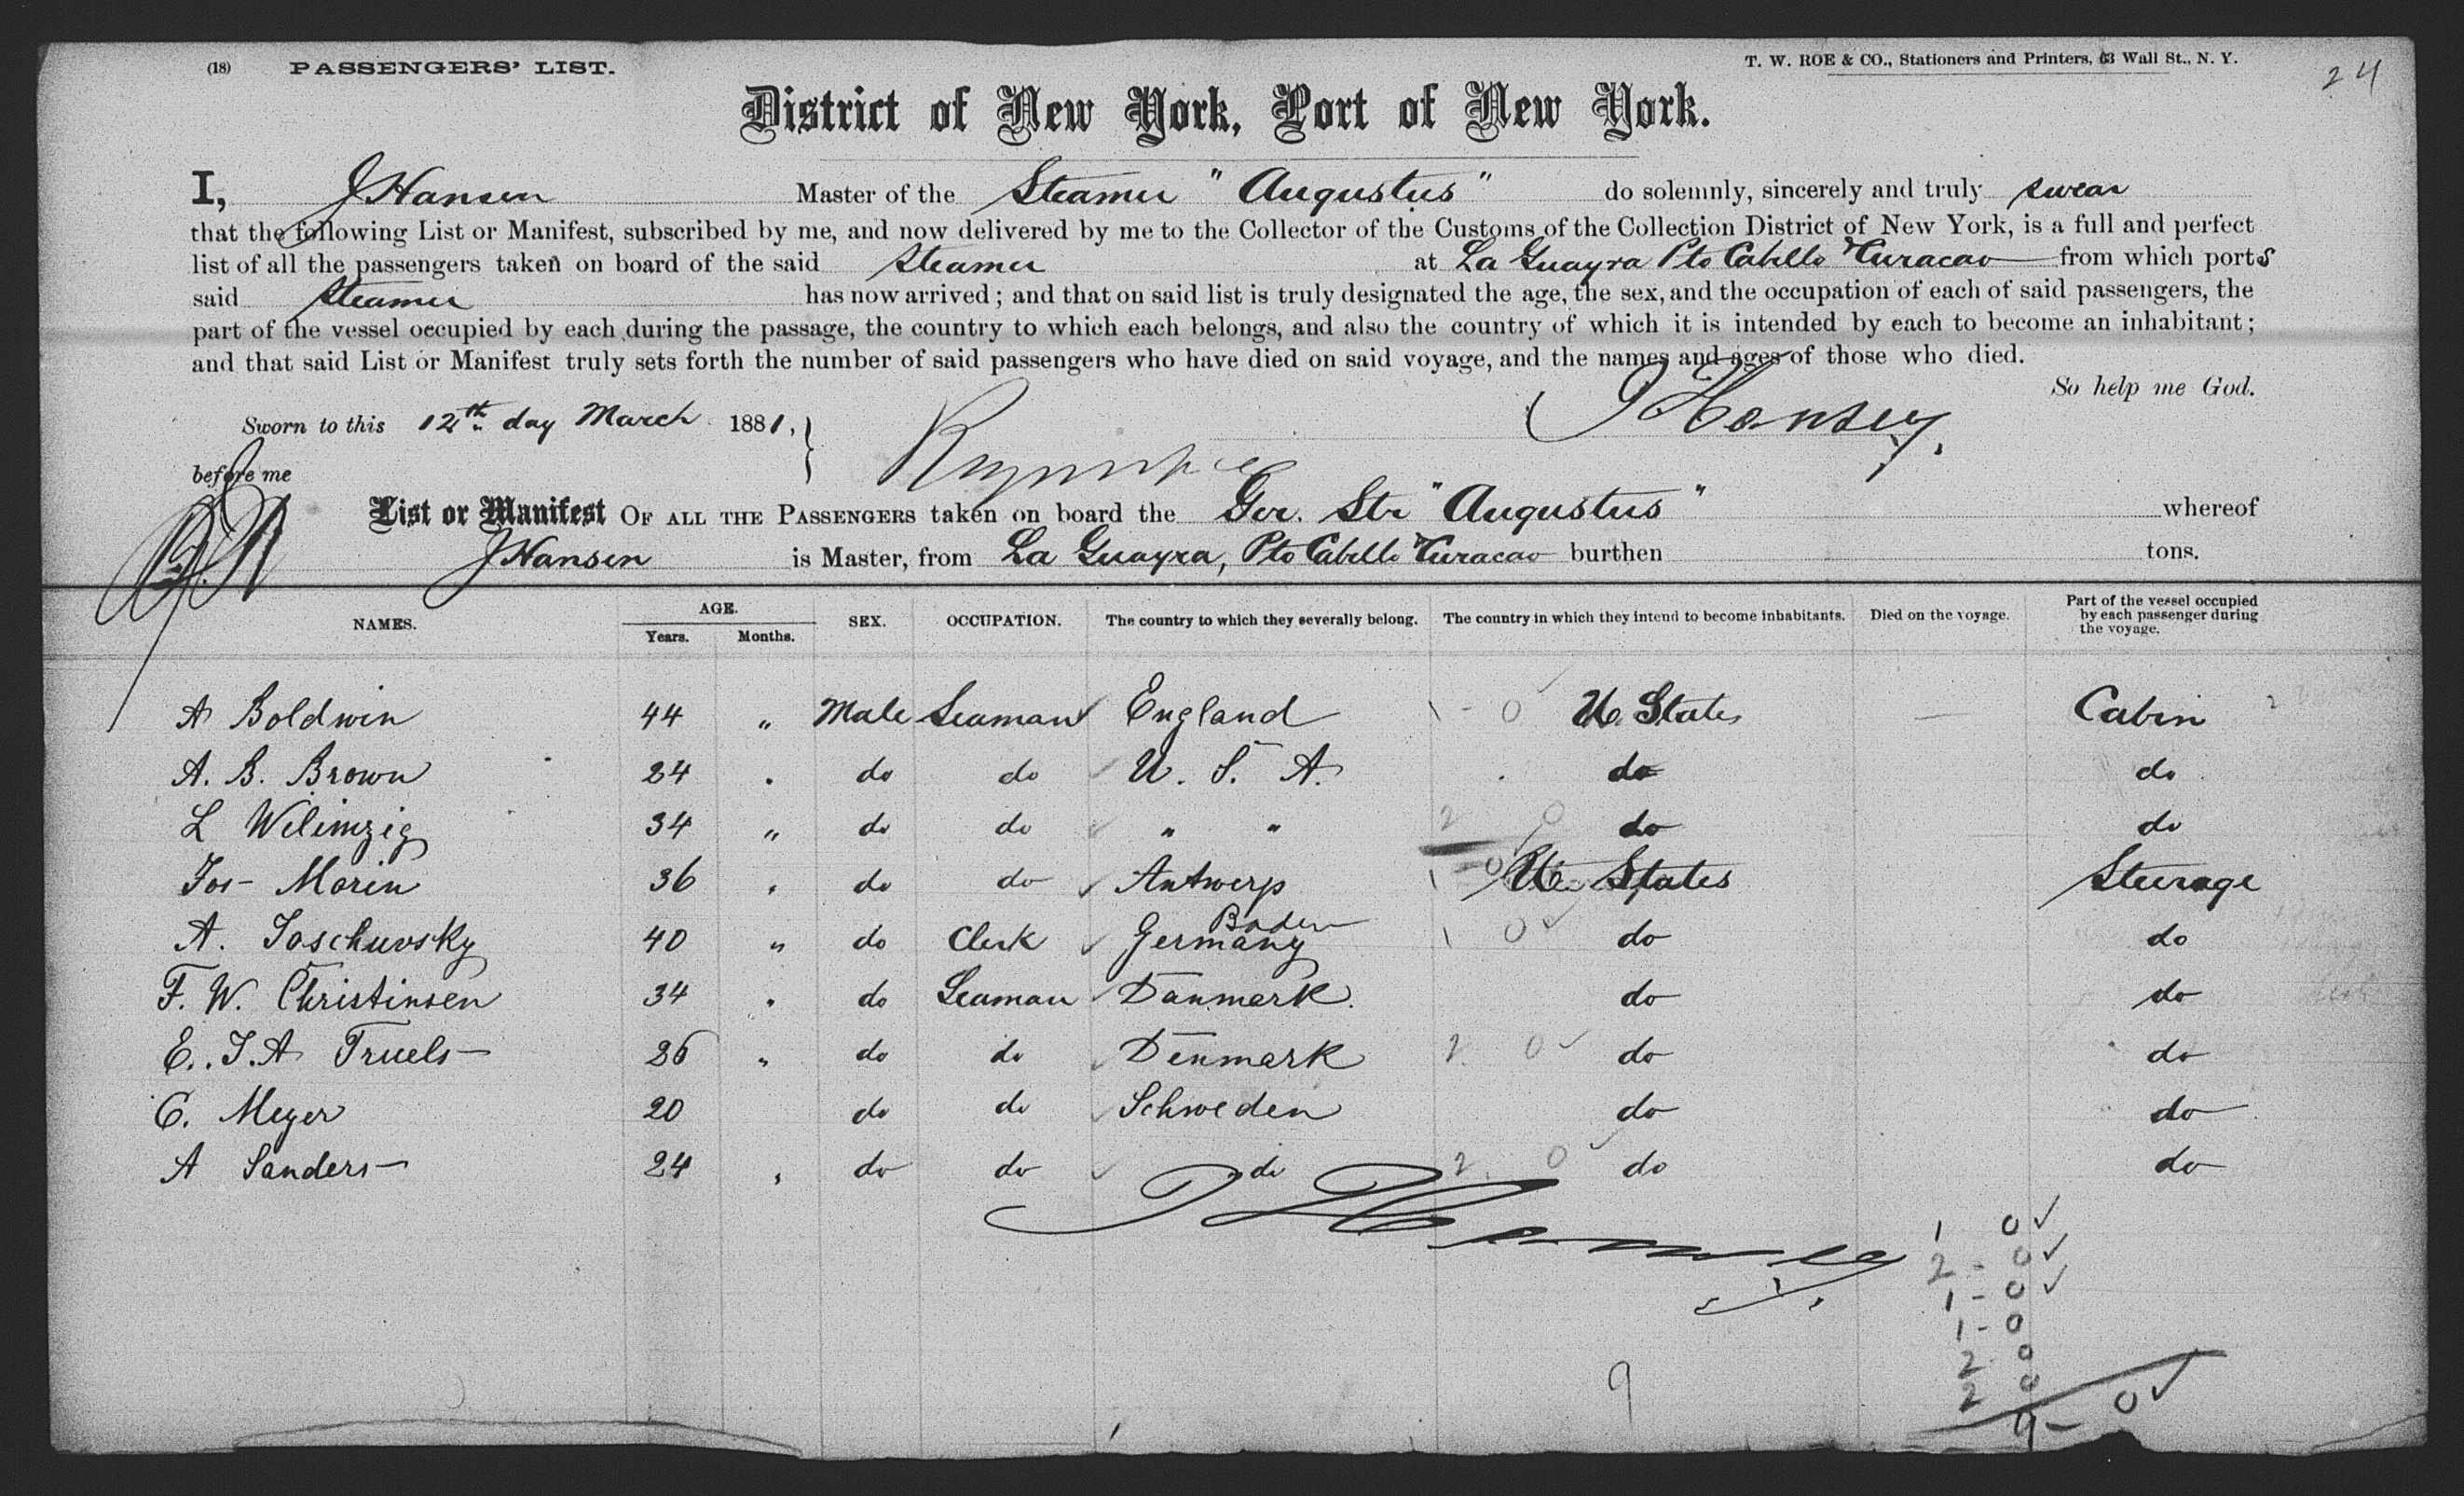 (18) PASSENGERS' LIST. T. W. ROE & CO., Stationers and Printers, 63 Wall St., N. Y. 24
District of New York, Port of New York.
I, J Hansen Master of the Steamer "Augustus" do solemnly, sincerely and truly swear
that the following List or Manifest, subscribed by me, and now delivered by me to the Collector of the Customs of the Collection District of New York, is a full and perfect
list of all the passengers taken on board of the said Steamer at La Guayra Pto Cabello & Curacao from which ports
said Steamer has now arrived; and that on said list is truly designated the age, the sex, and the occupation of each of said passengers, the
part of the vessel occupied by each during the passage, the country to which each belongs, and also the country of which it is intended by each to become an inhabitant;
and that said List or Manifest truly sets forth the number of said passengers who have died on said voyage, and the names and ages of those who died.
So help me God.
Sworn to this 12th day March 1881, J Hansen
before me
List or Manifest OF ALL THE PASSENGERS taken on board the Ger. Str "Augustus" whereof
J Hansen is Master, from La Guayra, Pto Cabello & Curacao burthen tons.
NAMES. AGE. Years. Months. SEX. OCCUPATION. The country to which they severally belong. The country in which they intend to become inhabitants. Died on the voyage. Part of the vessel occupied by each passenger during the voyage.
A Boldwin 44 " Male Seaman England 1 - 0 U. States — Cabin
A. B. Brown 24 " do do U. S. A. do do
L Wilimzig 34 " do do " " 2 0 do do
Jos- Morin 36 " do do Antwerp 1 - 0 U. States Steerage
A. Joschuvsky 40 " do Clerk Germany Baden 1 0 do do
F. W. Christinsen 34 " do Seaman Danmark. do do
E. J. A Truels 26 " do do Denmark 2. 0 do do
C. Meyer 20 do do Schweden do do
A Sanders 24 " do do do 2. 0 do do
J Hansen
1 0
2 - 0
1 - 0
1 - 0
2 0
2 0
9 9 - 0